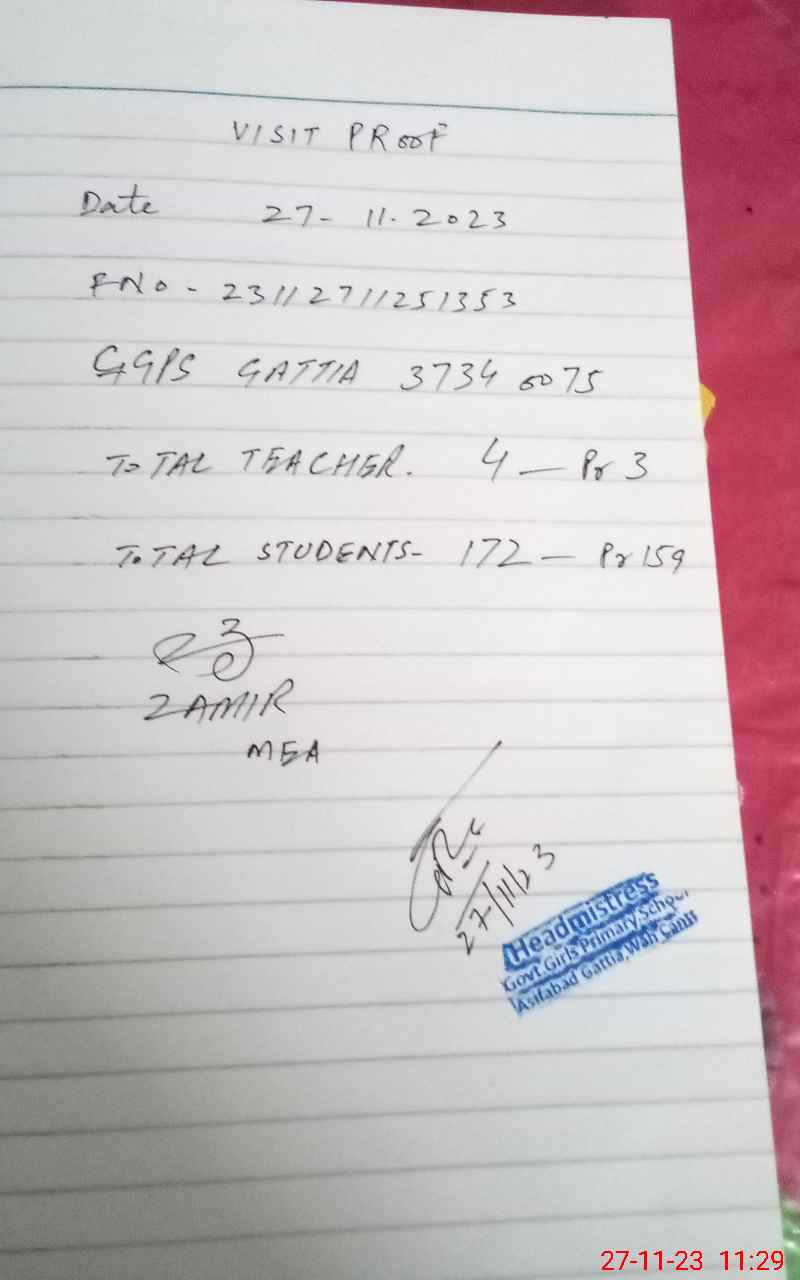 VISIT PROOF
Date 27-11-2023
FNo - 23112711251353
GGPS GATTIA 37340075
TOTAL TEACHER. 4 — Pr 3
TOTAL STUDENTS- 172 — Pr 159
ZAMIR
MEA
27/11/23
Headmistress
Govt Girls Primary School
Asifabad Gattia, Wah Cantt
27-11-23 11:29